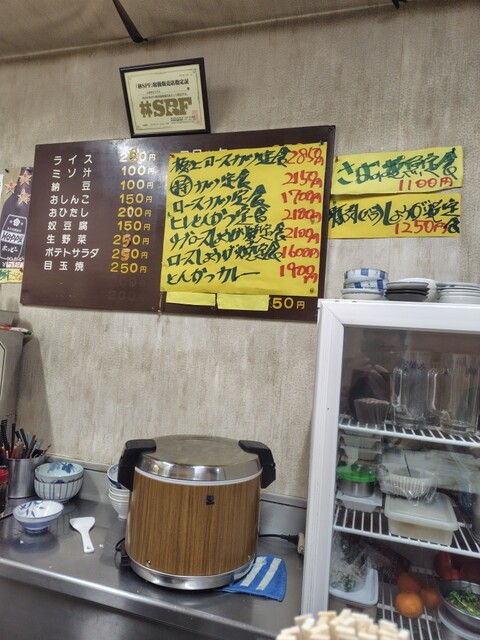 「林SPF」取扱販売店指定証
林SPF
ライス 200円
ミソ汁 100円
納豆 100円
おしんこ 150円
おひたし 200円
奴豆腐 150円
生野菜 250円
ポテトサラダ 250円
目玉焼 250円
極上ロースカツ定食 2850円
特カツ定食 2150円
ロースカツ定食 1700円
ヒレとんかつ定食 2180円
リブロースしょうが焼定食 2100円
ロースしょうが焼定食 1600円
とんかつカレー 1900円
50円
さば 定食
1100円
しょうが 定食
1250円
HOPPY
ホッピー